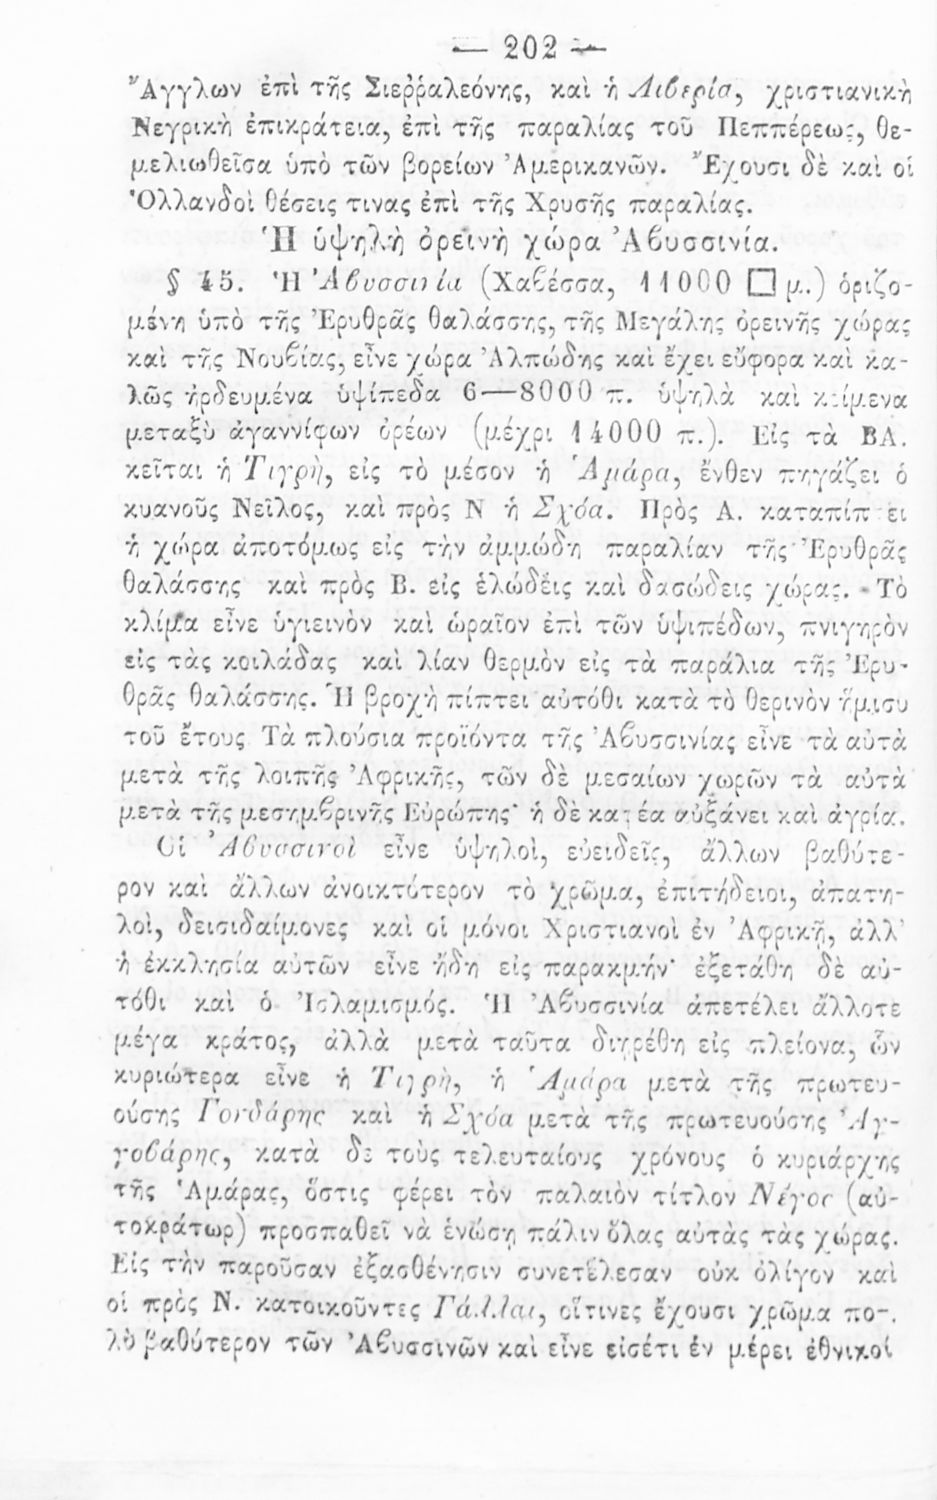 — 202 —
Ἄγγλων ἐπὶ τῆς Σιεῤῥαλεόνης, καὶ ἡ Λιβερία, χριστιανικὴ
Νεγρικὴ ἐπικράτεια, ἐπὶ τῆς παραλίας τοῦ Πεππέρεως, θε-
μελιωθεῖσα ὑπὸ τῶν βορείων Ἀμερικανῶν. Ἔχουσι δὲ καὶ οἱ
Ὁλλανδοὶ θέσεις τινας ἐπὶ τῆς Χρυσῆς παραλίας.
Ἡ ὑψηλὴ ὀρεινὴ χώρα Ἀβυσσινία.
§ 45. Ἡ Ἀβυσσινία (Χαβέσσα, 11000 □ μ.) ὁριζο-
μένη ὑπὸ τῆς Ἐρυθρᾶς θαλάσσης, τῆς Μεγάλης ὀρεινῆς χώρας
καὶ τῆς Νουβίας, εἶνε χώρα Ἀλπώδης καὶ ἔχει εὔφορα καὶ κα-
λῶς ἠρδευμένα ὑψίπεδα 6—8000 π. ὑψηλὰ καὶ κείμενα
μεταξὺ ἀγαννίφων ὀρέων (μέχρι 14000 π.). Εἰς τὰ ΒΑ.
κεῖται ἡ Τιγρὴ, εἰς τὸ μέσον ἡ Ἀμάρα, ἔνθεν πηγάζει ὁ
κυανοῦς Νεῖλος, καὶ πρὸς Ν ἡ Σχόα. Πρὸς Α. καταπίπτει
ἡ χώρα ἀποτόμως εἰς τὴν ἀμμώδη παραλίαν τῆς Ἐρυθρᾶς
θαλάσσης καὶ πρὸς Β. εἰς ἑλώδεις καὶ δασώδεις χώρας. Τὸ
κλίμα εἶνε ὑγιεινὸν καὶ ὡραῖον ἐπὶ τῶν ὑψιπέδων, πνιγηρὸν
εἰς τὰς κοιλάδας καὶ λίαν θερμὸν εἰς τὰ παράλια τῆς Ἐρυ-
θρᾶς θαλάσσης. Ἡ βροχὴ πίπτει αὐτόθι κατὰ τὸ θερινὸν ἥμισυ
τοῦ ἔτους Τὰ πλούσια προϊόντα τῆς Ἀβυσσινίας εἶνε τὰ αὐτὰ
μετὰ τῆς λοιπῆς Ἀφρικῆς, τῶν δὲ μεσαίων χωρῶν τὰ αὐτὰ
μετὰ τῆς μεσημβρινῆς Εὐρώπης· ἡ δὲ καφέα αὐξάνει καὶ ἀγρία.
Οἱ Ἀβυσσινοὶ εἶνε ὑψηλοὶ, εὐειδεῖς, ἄλλων βαθύτε-
ρον καὶ ἄλλων ἀνοικτότερον τὸ χρῶμα, ἐπιτήδειοι, ἀπατη-
λοὶ, δεισιδαίμονες καὶ οἱ μόνοι Χριστιανοὶ ἐν Ἀφρικῇ, ἀλλ'
ἡ ἐκκλησία αὐτῶν εἶνε ἤδη εἰς παρακμήν· ἐξετάθη δὲ αὐ-
τόθι καὶ ὁ Ἰσλαμισμός. Ἡ Ἀβυσσινία ἀπετέλει ἄλλοτε
μέγα κράτος, ἀλλὰ μετὰ ταῦτα διῃρέθη εἰς πλείονα, ὧν
κυριώτερα εἶνε ἡ Τιγρὴ, ἡ Ἀμάρα μετὰ τῆς πρωτευ-
ούσης Γονδάρης καὶ ἡ Σχόα μετὰ τῆς πρωτευούσης Ἀγ-
γοβάρης, κατὰ δὲ τοὺς τελευταίους χρόνους ὁ κυριάρχης
τῆς Ἀμάρας, ὅστις φέρει τὸν παλαιὸν τίτλον Νέγος (αὐ-
τοκράτωρ) προσπαθεῖ νὰ ἑνώσῃ πάλιν ὅλας αὐτὰς τὰς χώρας.
Εἰς τὴν παροῦσαν ἐξασθένησιν συνετέλεσαν οὐκ ὀλίγον καὶ
οἱ πρὸς Ν. κατοικοῦντες Γάλλαι, οἵτινες ἔχουσι χρῶμα πο-
λὺ βαθύτερον τῶν Ἀβυσσινῶν καὶ εἶνε εἰσέτι ἐν μέρει ἐθνικοί